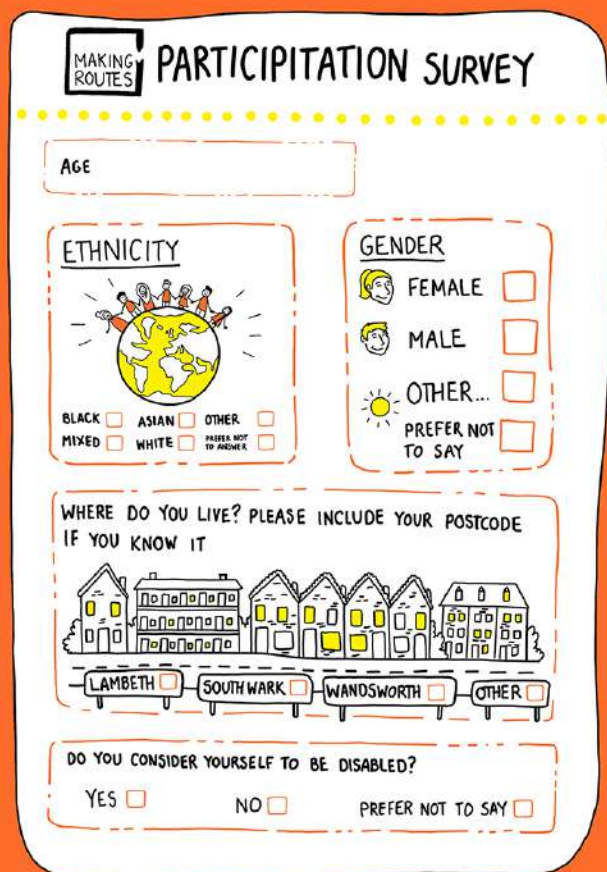 MAKING
ROUTES
PARTICIPITATION SURVEY
AGE
ETHNICITY
BLACK
ASIAN
OTHER
MIXED
WHITE
PREFER NOT
TO ANSWER
GENDER
FEMALE
MALE
OTHER...
PREFER NOT
TO SAY
WHERE DO YOU LIVE? PLEASE INCLUDE YOUR POSTCODE
IF YOU KNOW IT
LAMBETH
SOUTHWARK
WANDSWORTH
OTHER
DO YOU CONSIDER YOURSELF TO BE DISABLED?
YES
NO
PREFER NOT TO SAY